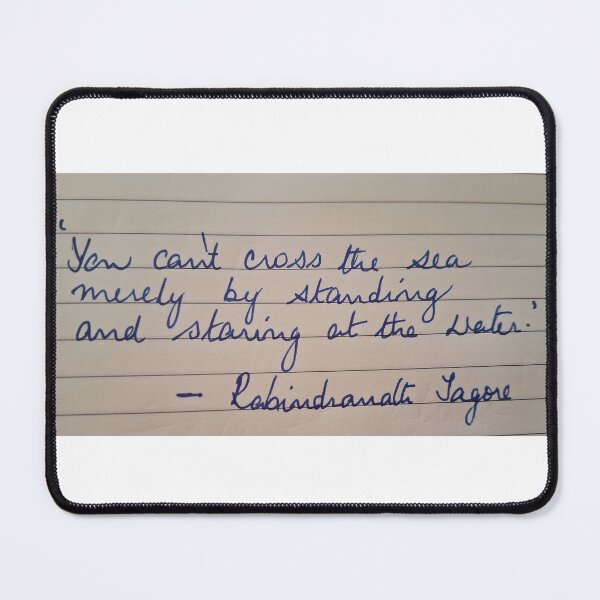 'You can't cross the sea
merely by standing
and staring at the water.'
— Rabindranath Tagore